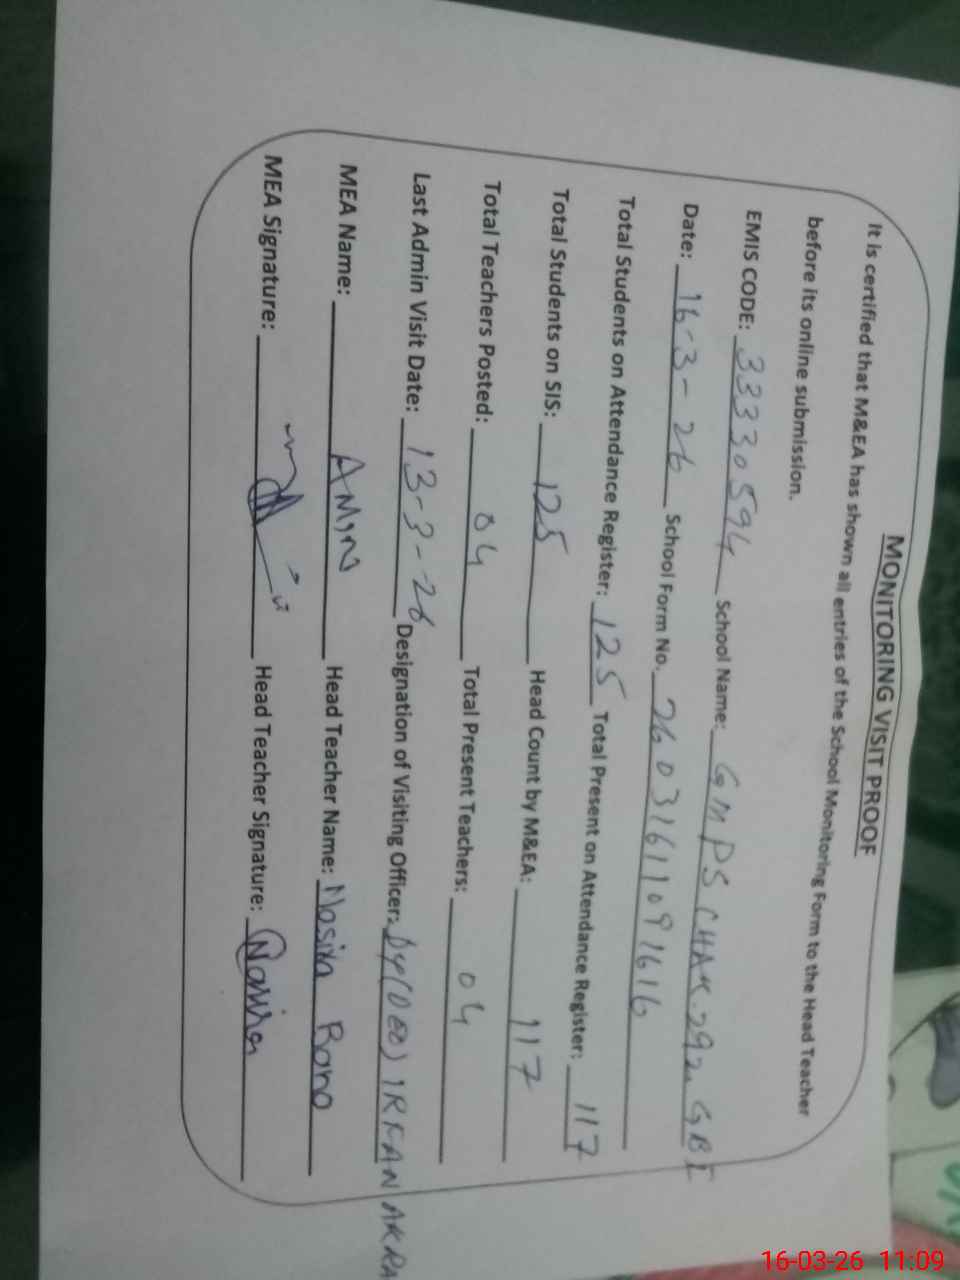 MONITORING VISIT PROOF
It is certified that M&EA has shown all entries of the School Monitoring Form to the Head Teacher
before its online submission.
EMIS CODE: 33330594 School Name: GMPS CHAK 292 GB I
Date: 16-3-26 School Form No. 26031611091616
Total Students on Attendance Register: 125 Total Present on Attendance Register: 117
Total Students on SIS: 125 Head Count by M&EA: 117
Total Teachers Posted: 04 Total Present Teachers: 04
Last Admin Visit Date: 13-3-26 Designation of Visiting Officer: Dy(DEO) IRFAN AKRA
MEA Name: AMIN Head Teacher Name: Bano
MEA Signature: Head Teacher Signature:
16-03-26 11:09